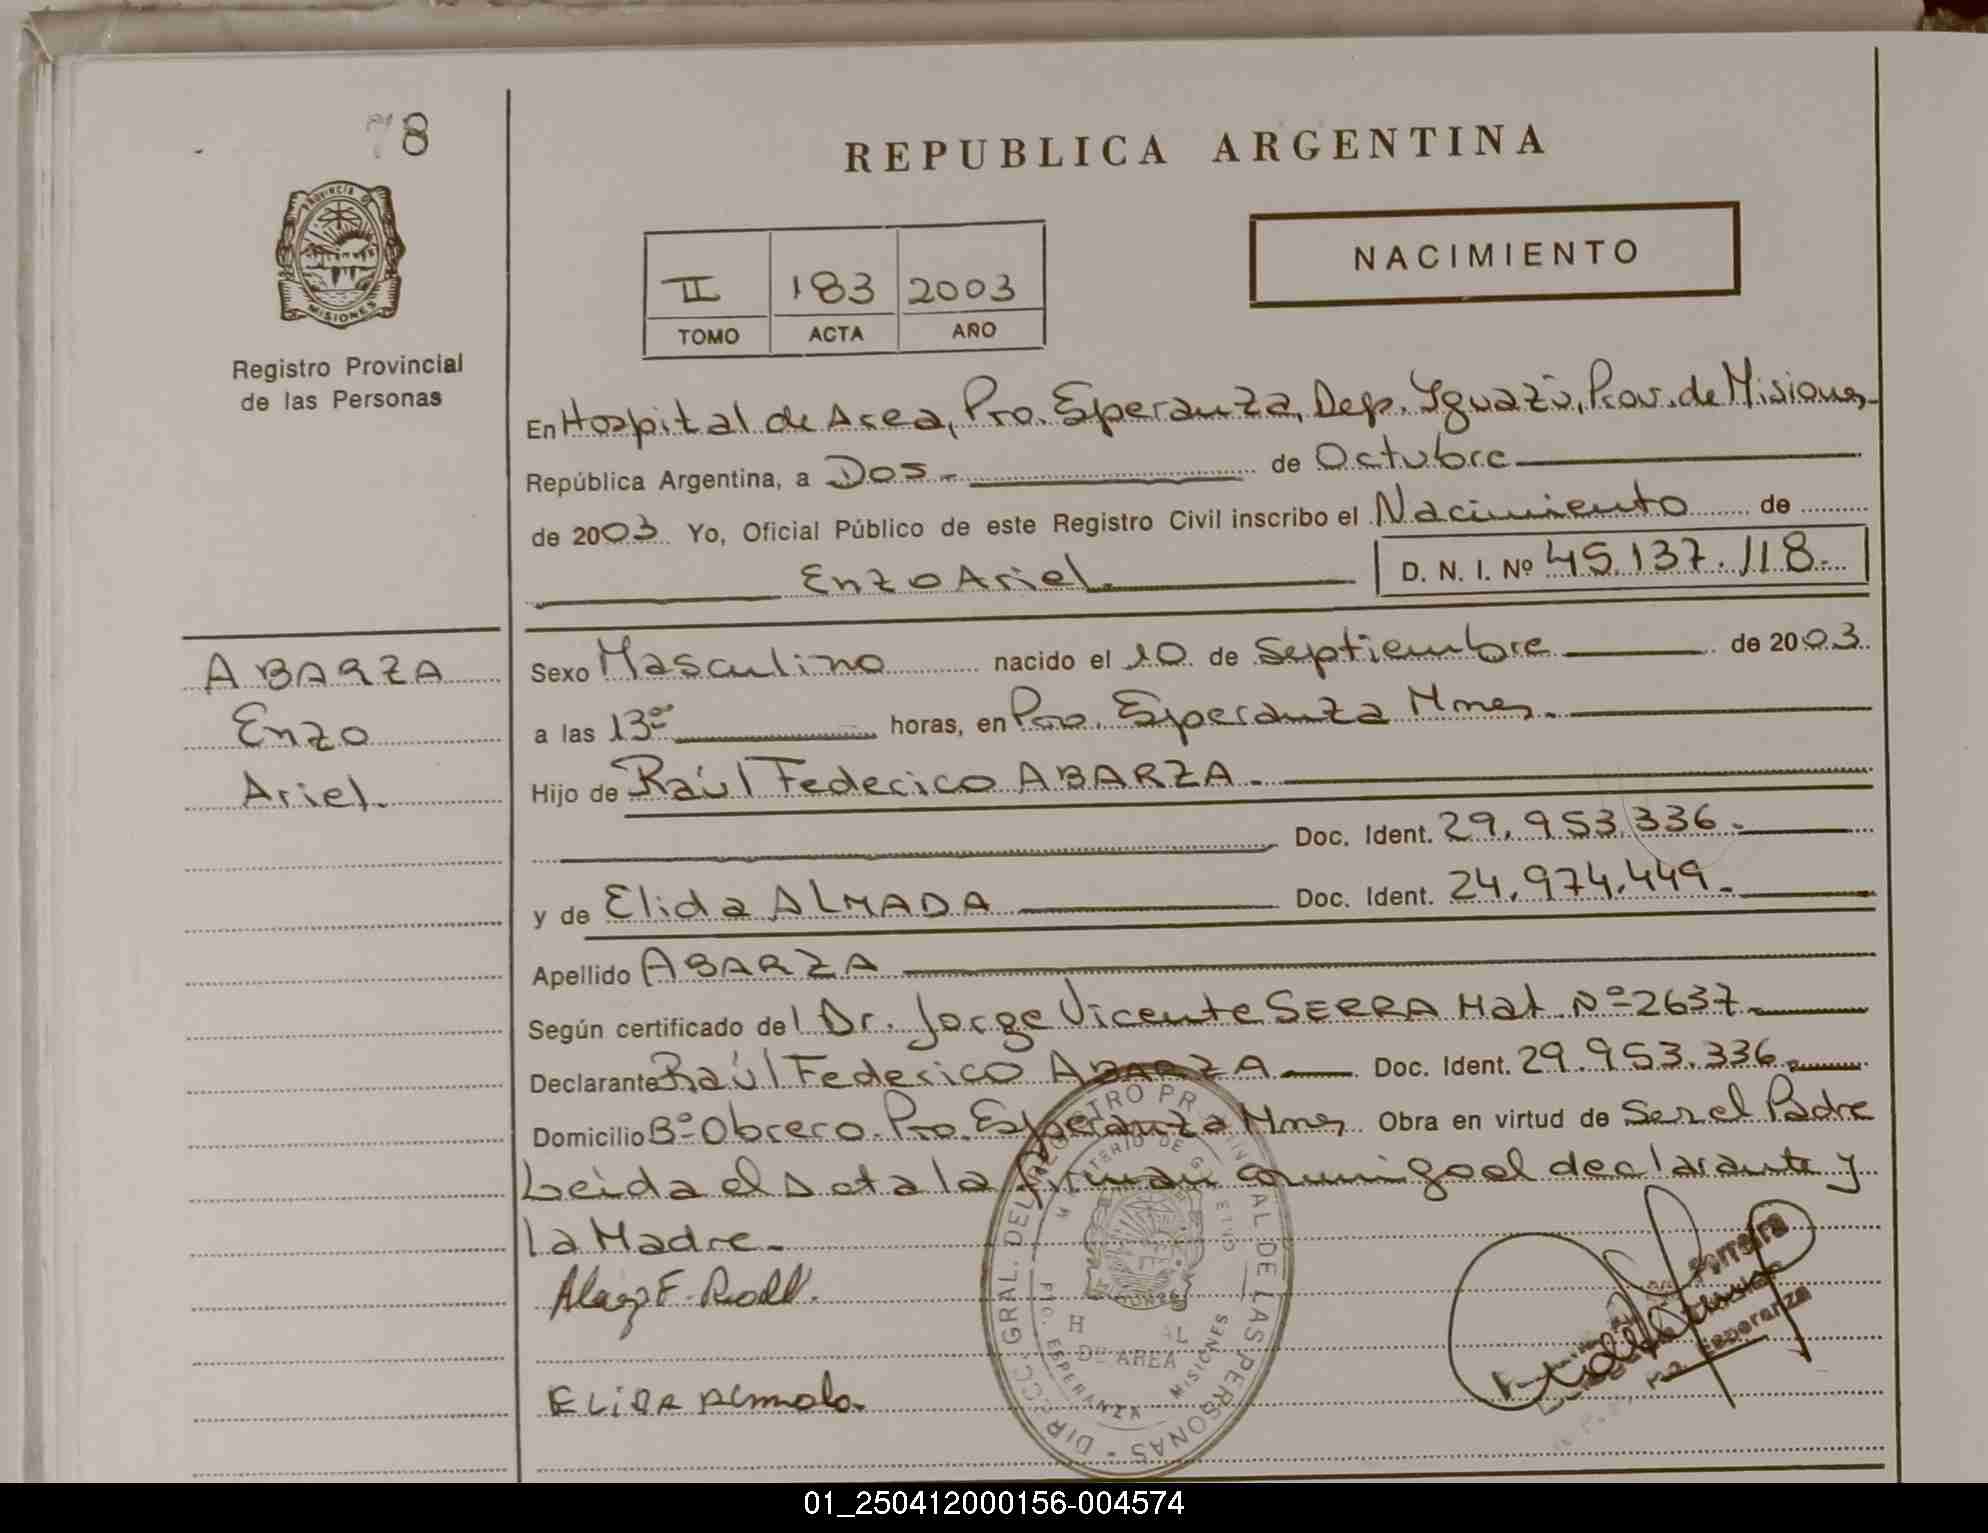 78
REPUBLICA ARGENTINA
PROVINCIA DE
MISIONES
Registro Provincial
de las Personas
NACIMIENTO
II 183 2003
TOMO ACTA AÑO
En Hospital de Area, Pto. Esperanza, Dep. Iguazú, Prov. de Misiones
República Argentina, a Dos.- de Octubre
de 2003 Yo, Oficial Público de este Registro Civil inscribo el Nacimiento de
Enzo Ariel. D. N. I. Nº 45.137.118.-
ABARZA
Enzo
Ariel.
Sexo Masculino nacido el 10 de Septiembre de 2003.
a las 13ºº horas, en Pto. Esperanza Mnes.
Hijo de Raúl Federico ABARZA.
Doc. Ident. 29.953.336.
y de Elida ALMADA Doc. Ident. 24.974.449.
Apellido ABARZA
Según certificado del Dr. Jorge Vicente SERRA Mat. Nº 2637.
Declarante Raúl Federico ABARZA Doc. Ident. 29.953.336.
Domicilio Bº Obrero. Pto. Esperanza Mnes Obra en virtud de Ser el Padre
Leida el Acta la firman conmigo el declarante y
la Madre.
DIR. GRAL. DEL REGISTRO PROVINCIAL DE LAS PERSONAS
DE AREA
PTO. ESPERANZA - MISIONES
Ferreira
Esperanza
01_250412000156-004574